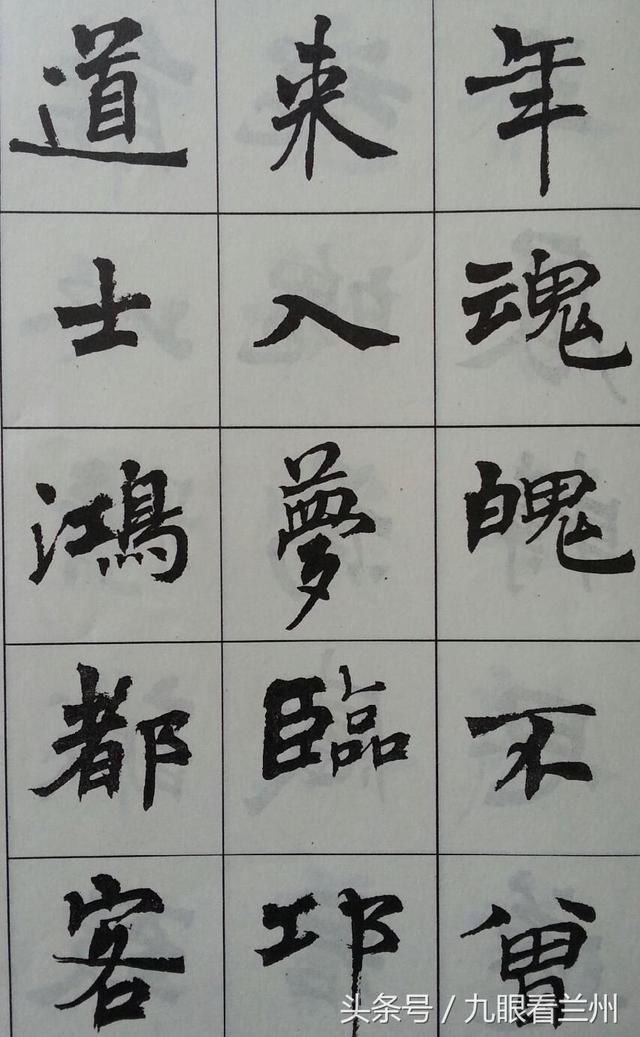 年魂魄不曾
来入夢臨邛
道士鴻都客
头条号 / 九眼看兰州